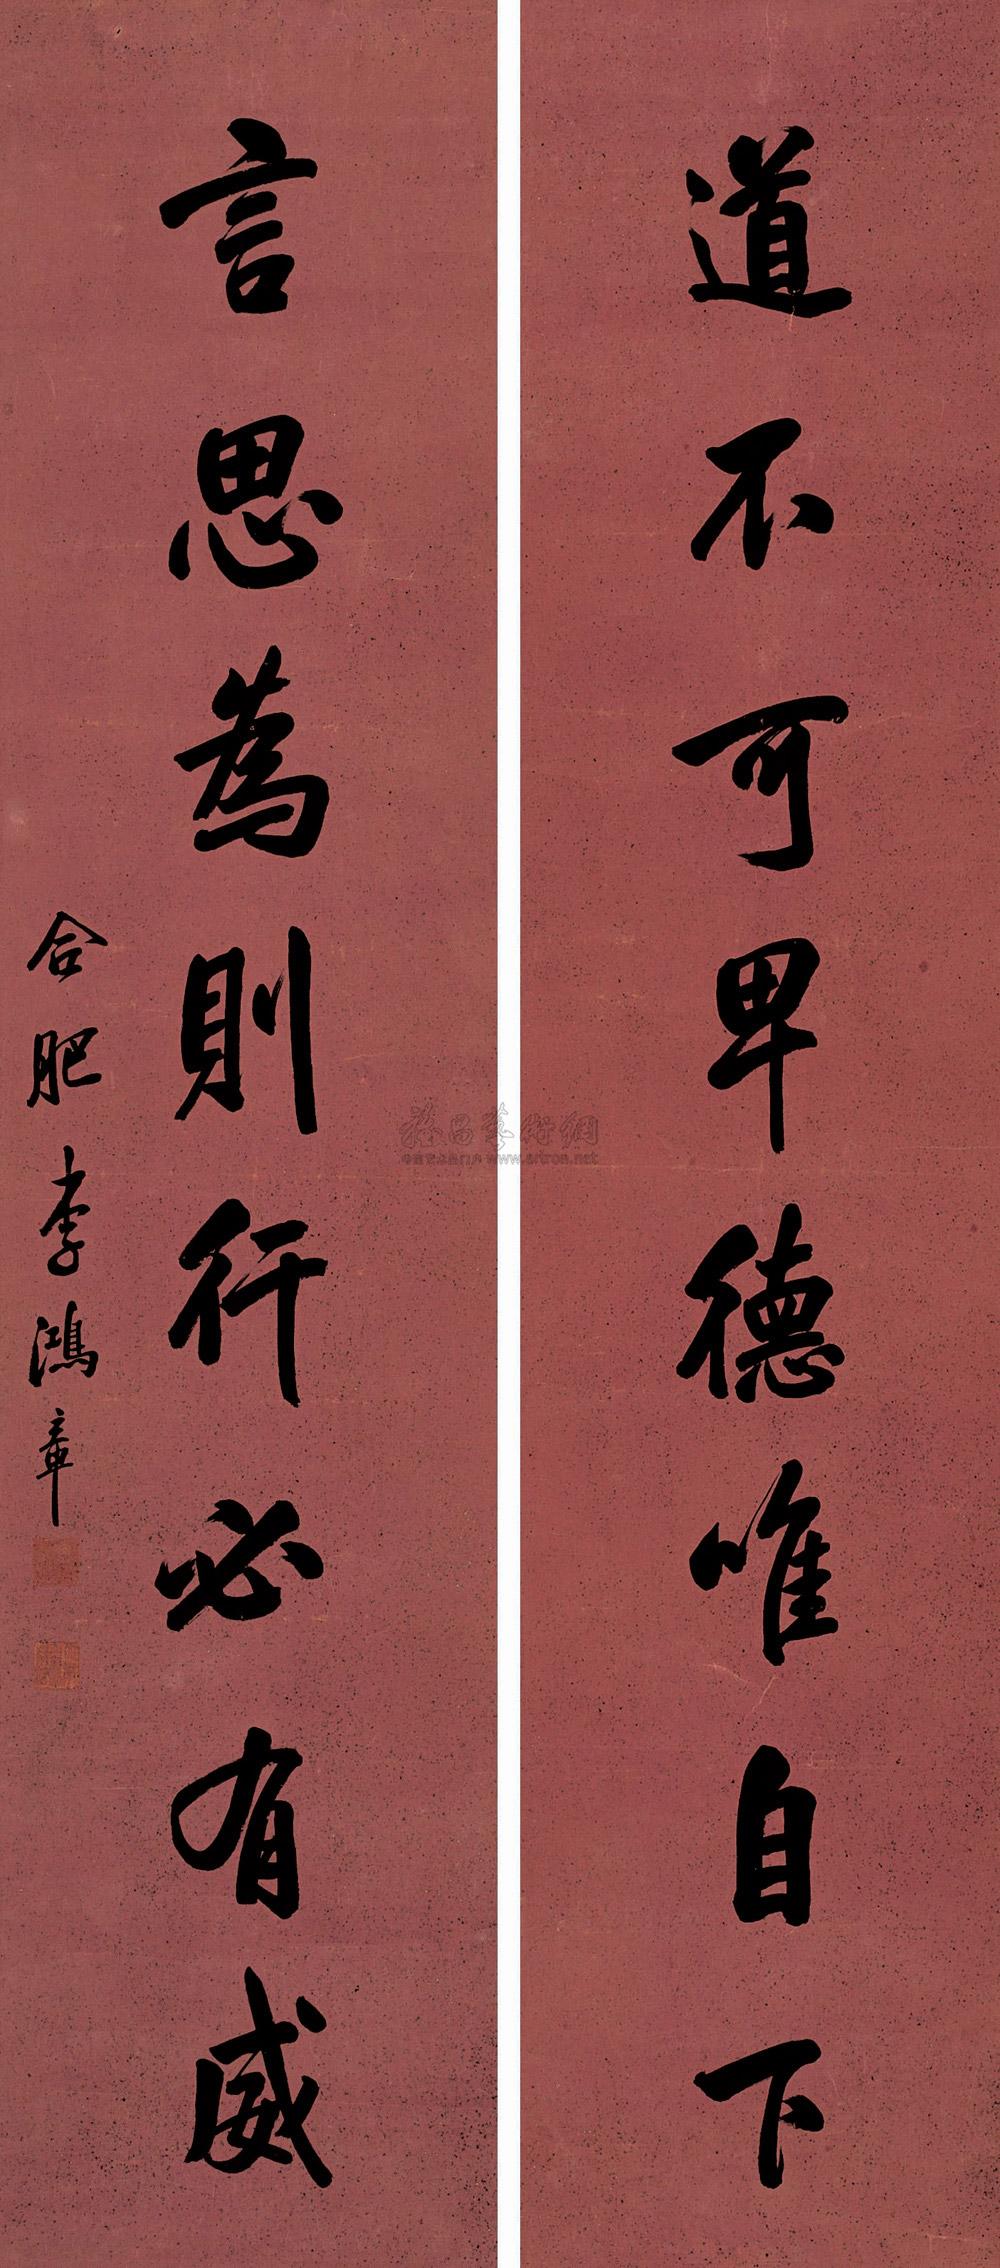 道不可卑德唯自下
言思為則行必有威
合肥李鴻章
www.artron.net